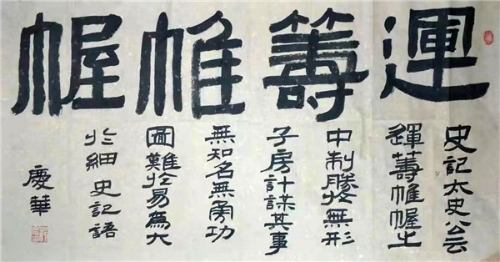 運籌帷幄
史記太史公云
運籌帷幄之
中制勝於無形
子房計謀其事
無知名無勇功
圖難於易為大
於細史記語
慶華